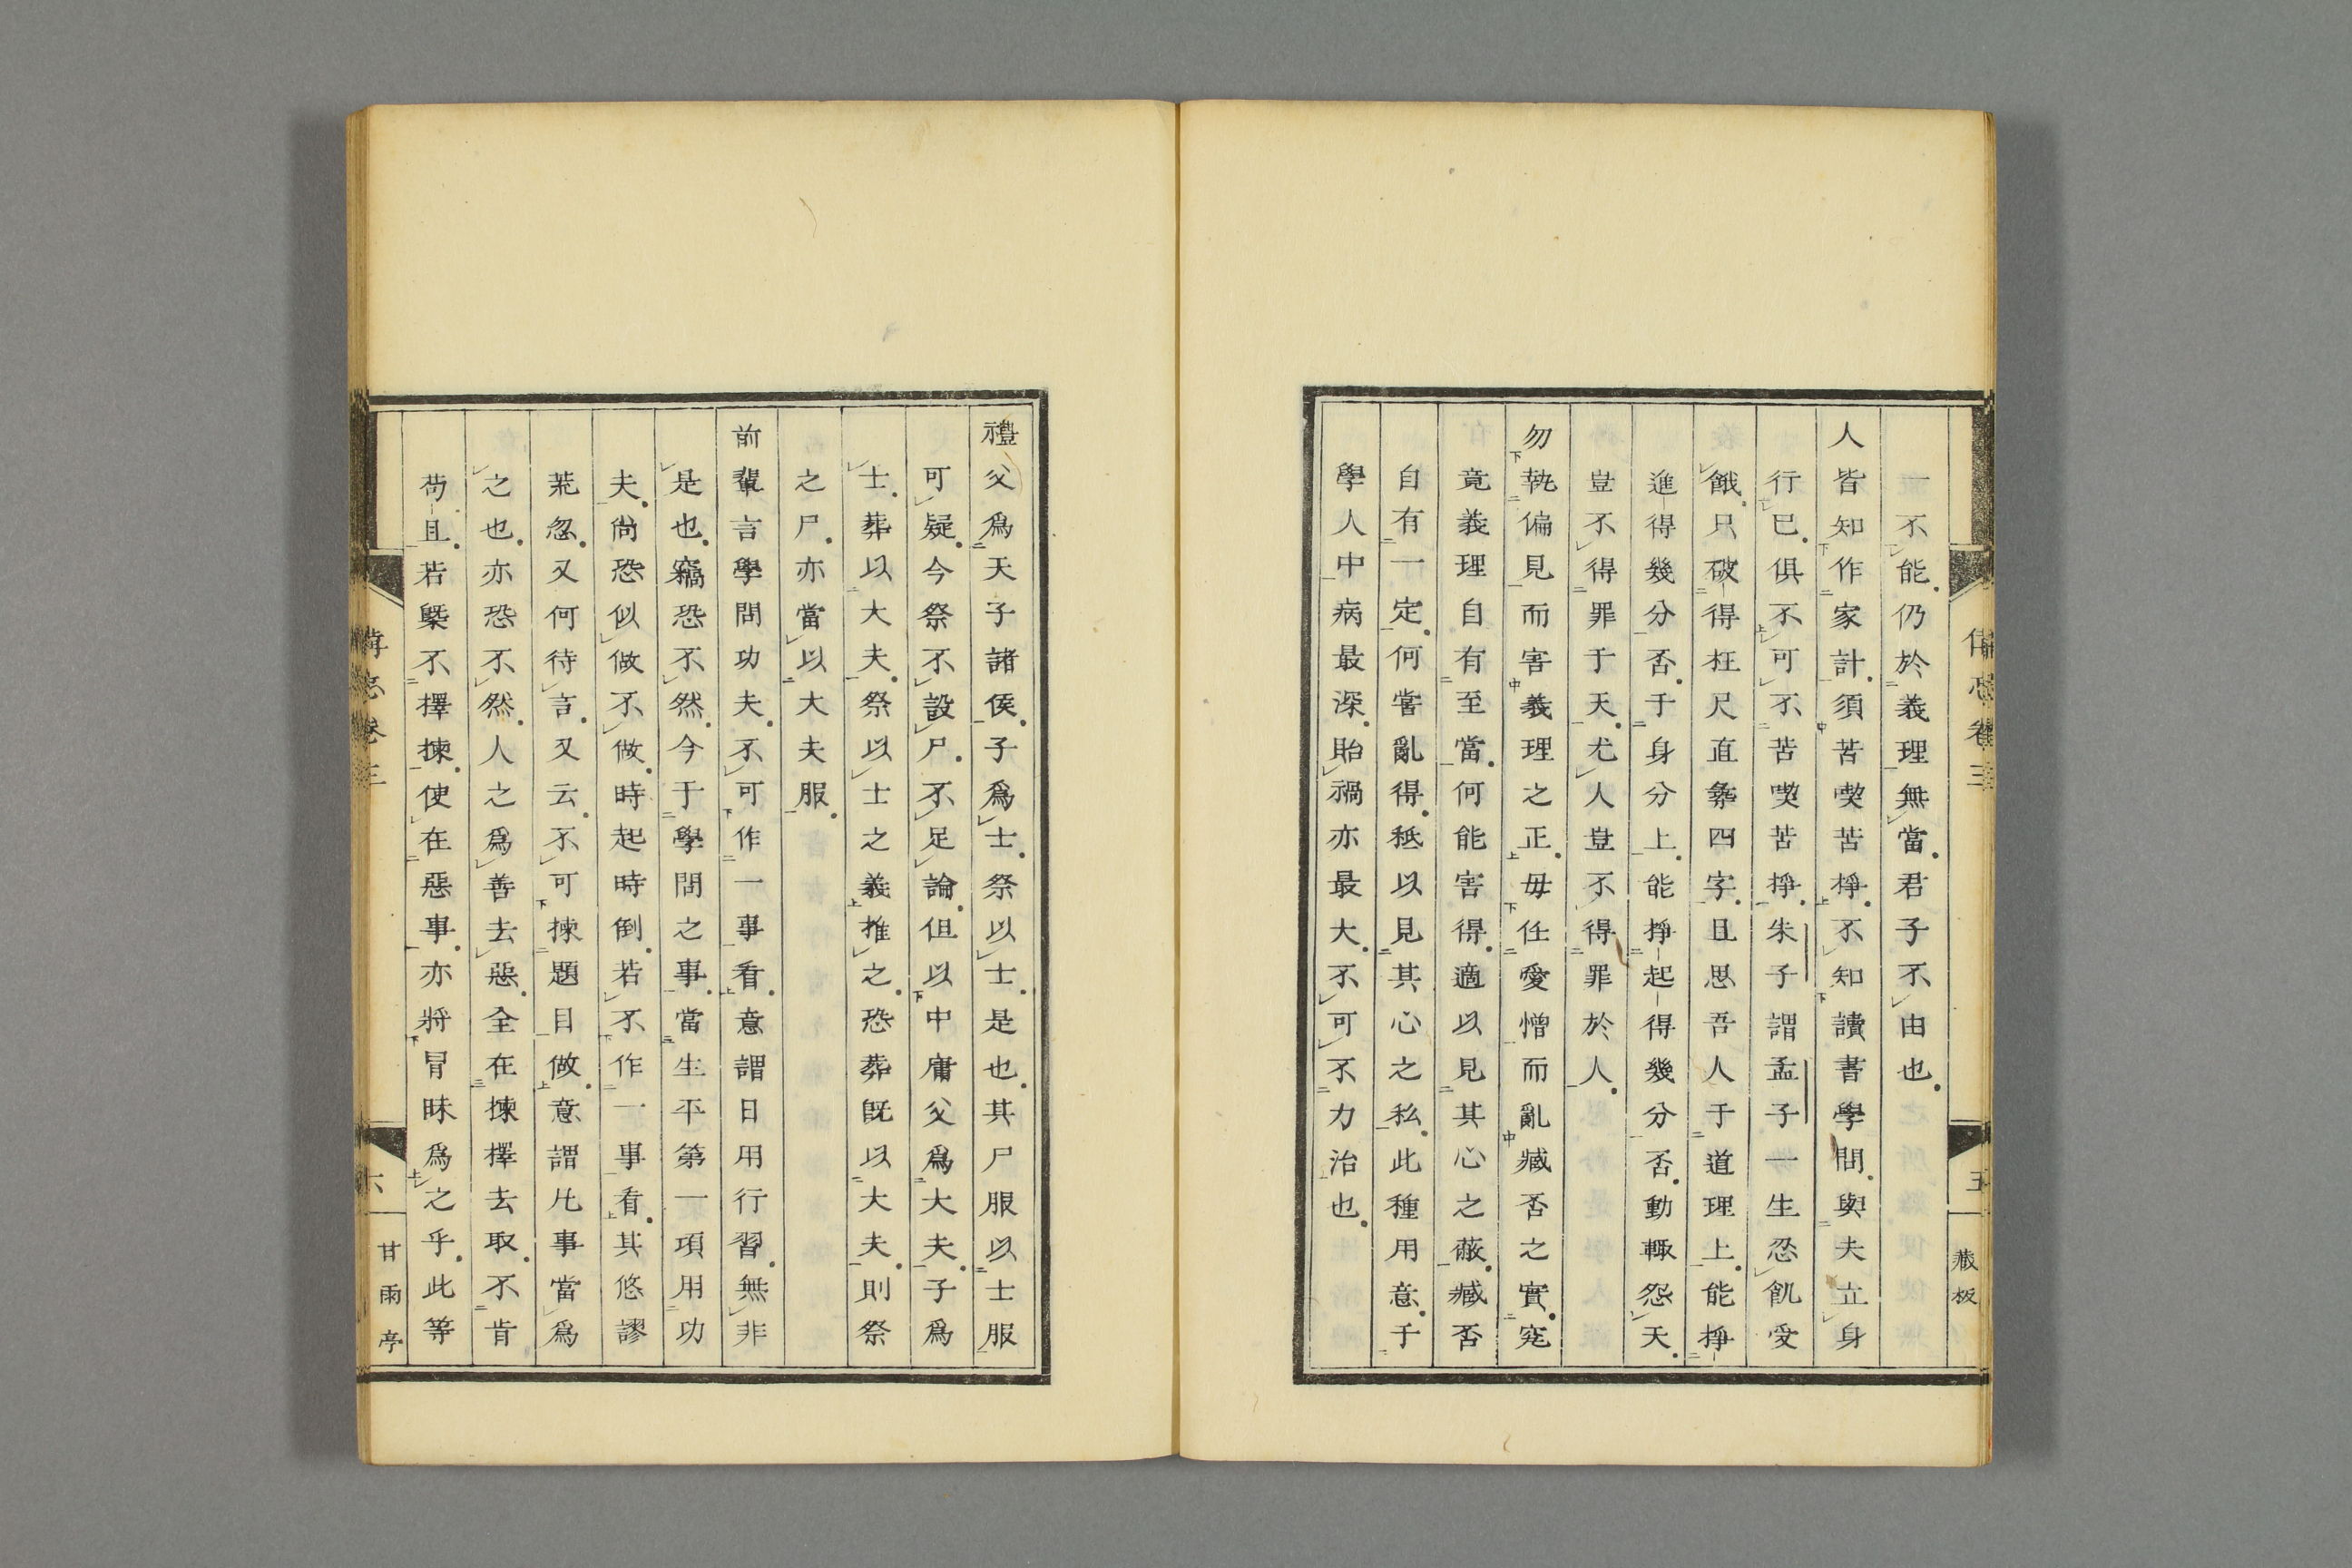 一不能仍於義理無當君子不由也
人皆知作家計須苦喫苦掙不知讀書學問與夫立身
行已俱不可不苦喫苦掙朱子謂孟子一生忍飢受
餓只破得枉尺直尋四字且思吾人于道理上能掙
進得幾分否于身分上能掙起得幾分否動輒怨天
豈不得罪于天尤人豈不得罪於人
勿執偏見而害義理之正毋任愛憎而亂臧否之實究
竟義理自有至當何能害得適以見其心之蔽臧否
自有一定何嘗亂得秪以見其心之私此種用意于
學人中病最深貽禍亦最大不可不力治也
備忘卷三
五
藏板
禮父爲天子諸侯子爲士祭以士是也其尸服以士服
可疑今祭不設尸不足論但以中庸父爲大夫子爲
士葬以大夫祭以士之義推之恐葬既以大夫則祭
之尸亦當以大夫服
前輩言學問功夫不可作一事看意謂日用行習無非
是也竊恐不然今于學問之事當生平第一項用功
夫尙恐似做不做時起時倒若不作一事看其悠謬
荒忽又何待言又云不可揀題目做意謂凡事當爲
之也亦恐不然人之爲善去惡全在揀擇去取不肯
苟且若槩不擇揀使在惡事亦將冒昧爲之乎此等
備忘卷三
六
甘雨亭